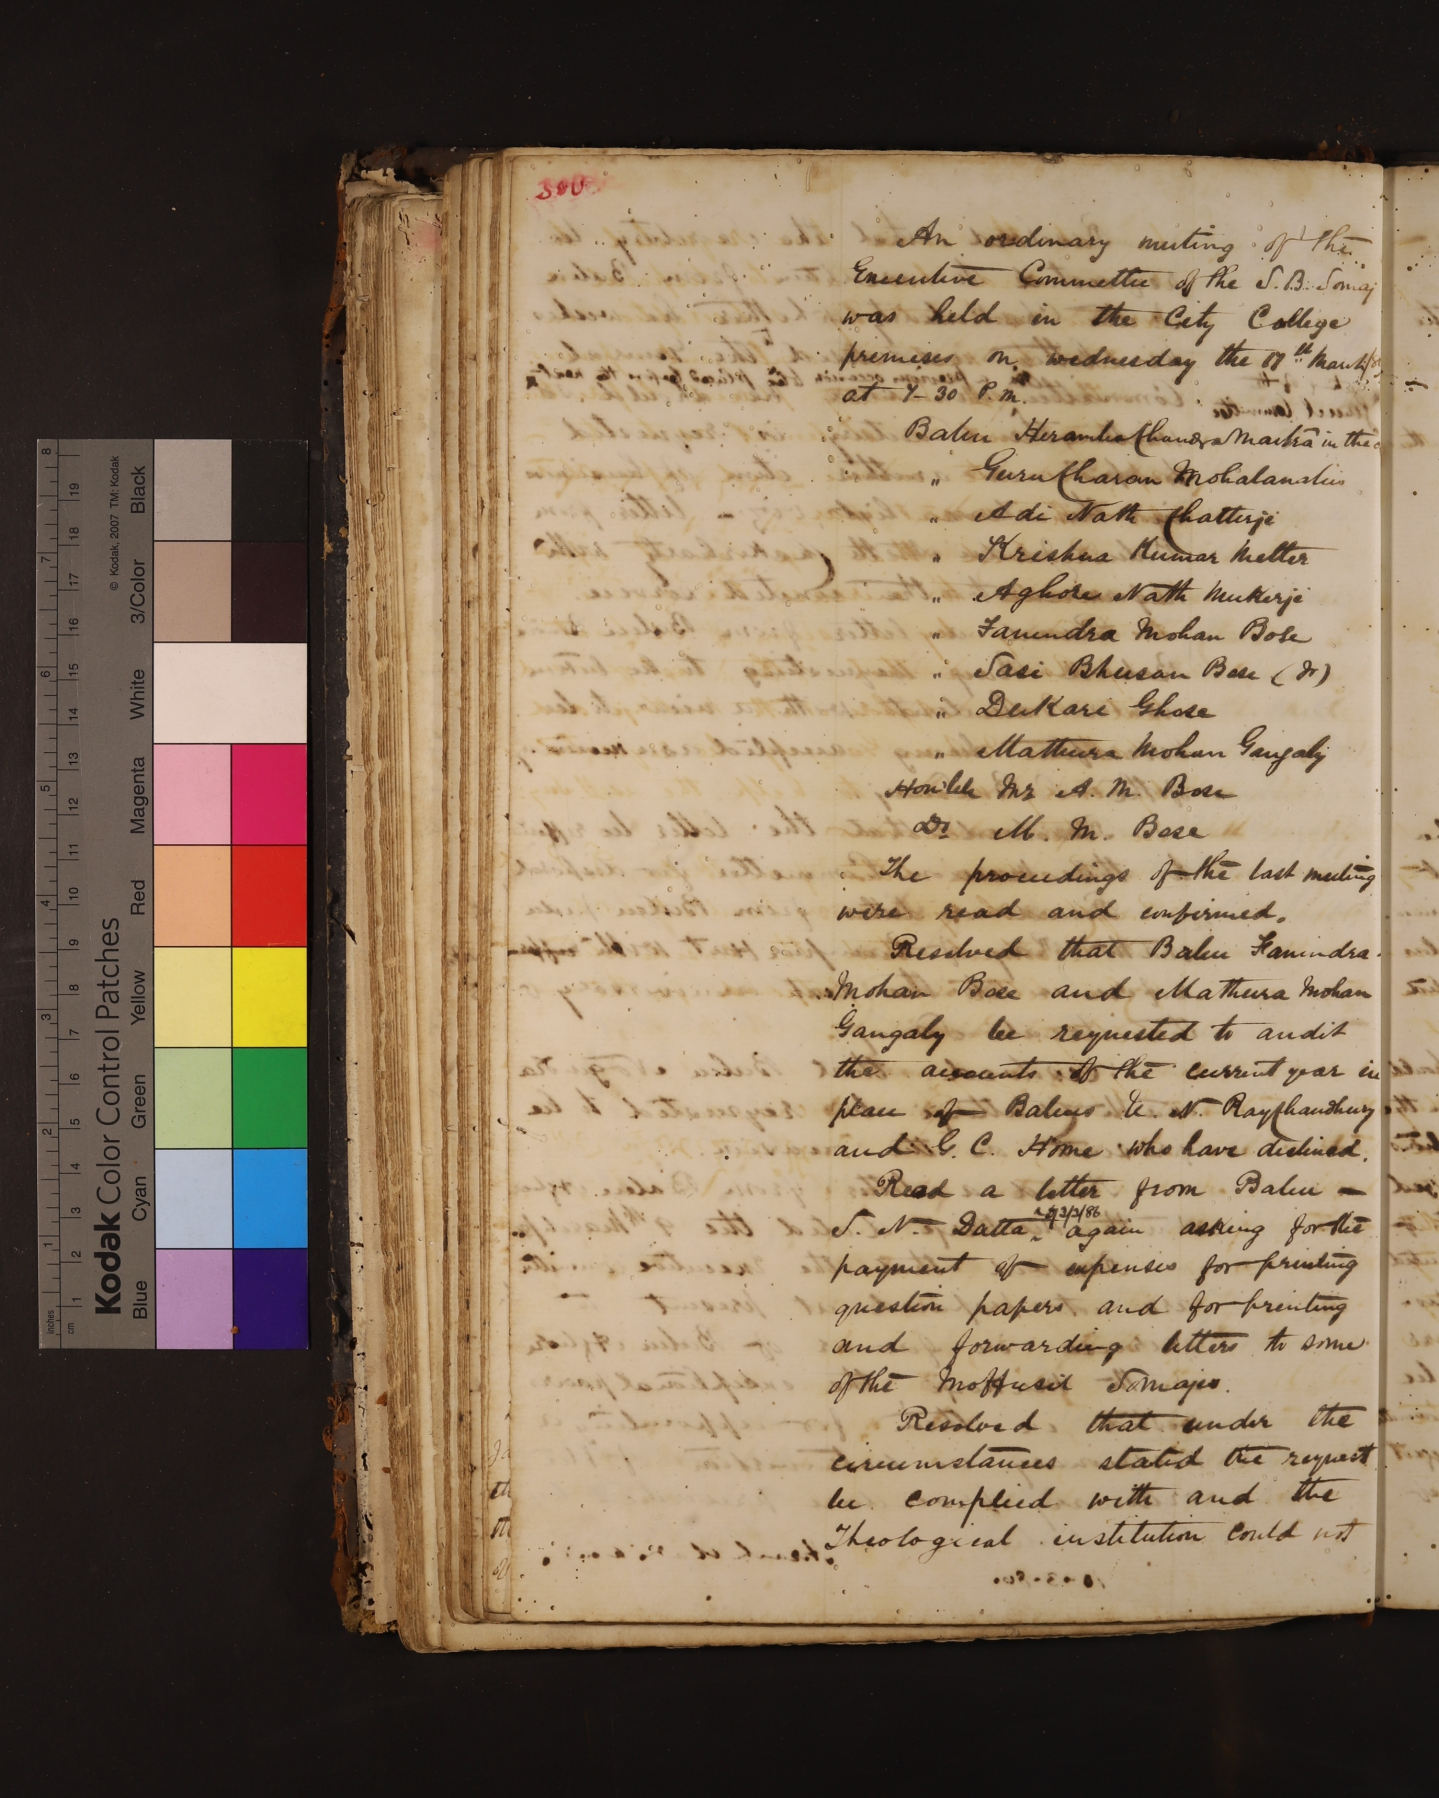 300
An ordinary meeting of the
Executive Committee of the S. B. Somaj
was held in the City College
premises on wednesday the 17th March
at 7-30 P.m.
Babu Heramba Chandra Maitra in the
„ Guru Charan Mohalanabis
„ Adi Nath Chatterji
„ Krishna Kumar Mitter
„ Aghore Nath Mukerji
„ Fanindra Mohan Bose
„ Sasi Bhusan Bose (Jr)
„ Dukari Ghose
„ Mathura Mohan Gangaly
Hon'ble Mr A. M. Bose
Dr M. M. Bose
The proceedings of the last meeting
were read and confirmed.
Resolved that Babu Fanindra
Mohan Bose and Mathura Mohan
Gangaly be requested to audit
the accounts of the current year in
place of Babus U. N. RayChaudhury
and G. C. Home who have declined.
Read a letter from Babu —
S. N. Datta, of 3/3/86 again asking for the
payment of expenses for printing
question papers and for printing
and forwarding letters to some
of the Moffusil Somajes.
Resolved that under the
circumstances stated the request
be complied with and the
Theological institution could not
Kodak Color Control Patches
© Kodak, 2007 TM: Kodak
Blue Cyan Green Yellow Red Magenta White 3/Color Black
inches 1 2 3 4 5 6 7 8
cm 1 2 3 4 5 6 7 8 9 10 11 12 13 14 15 16 17 18 19